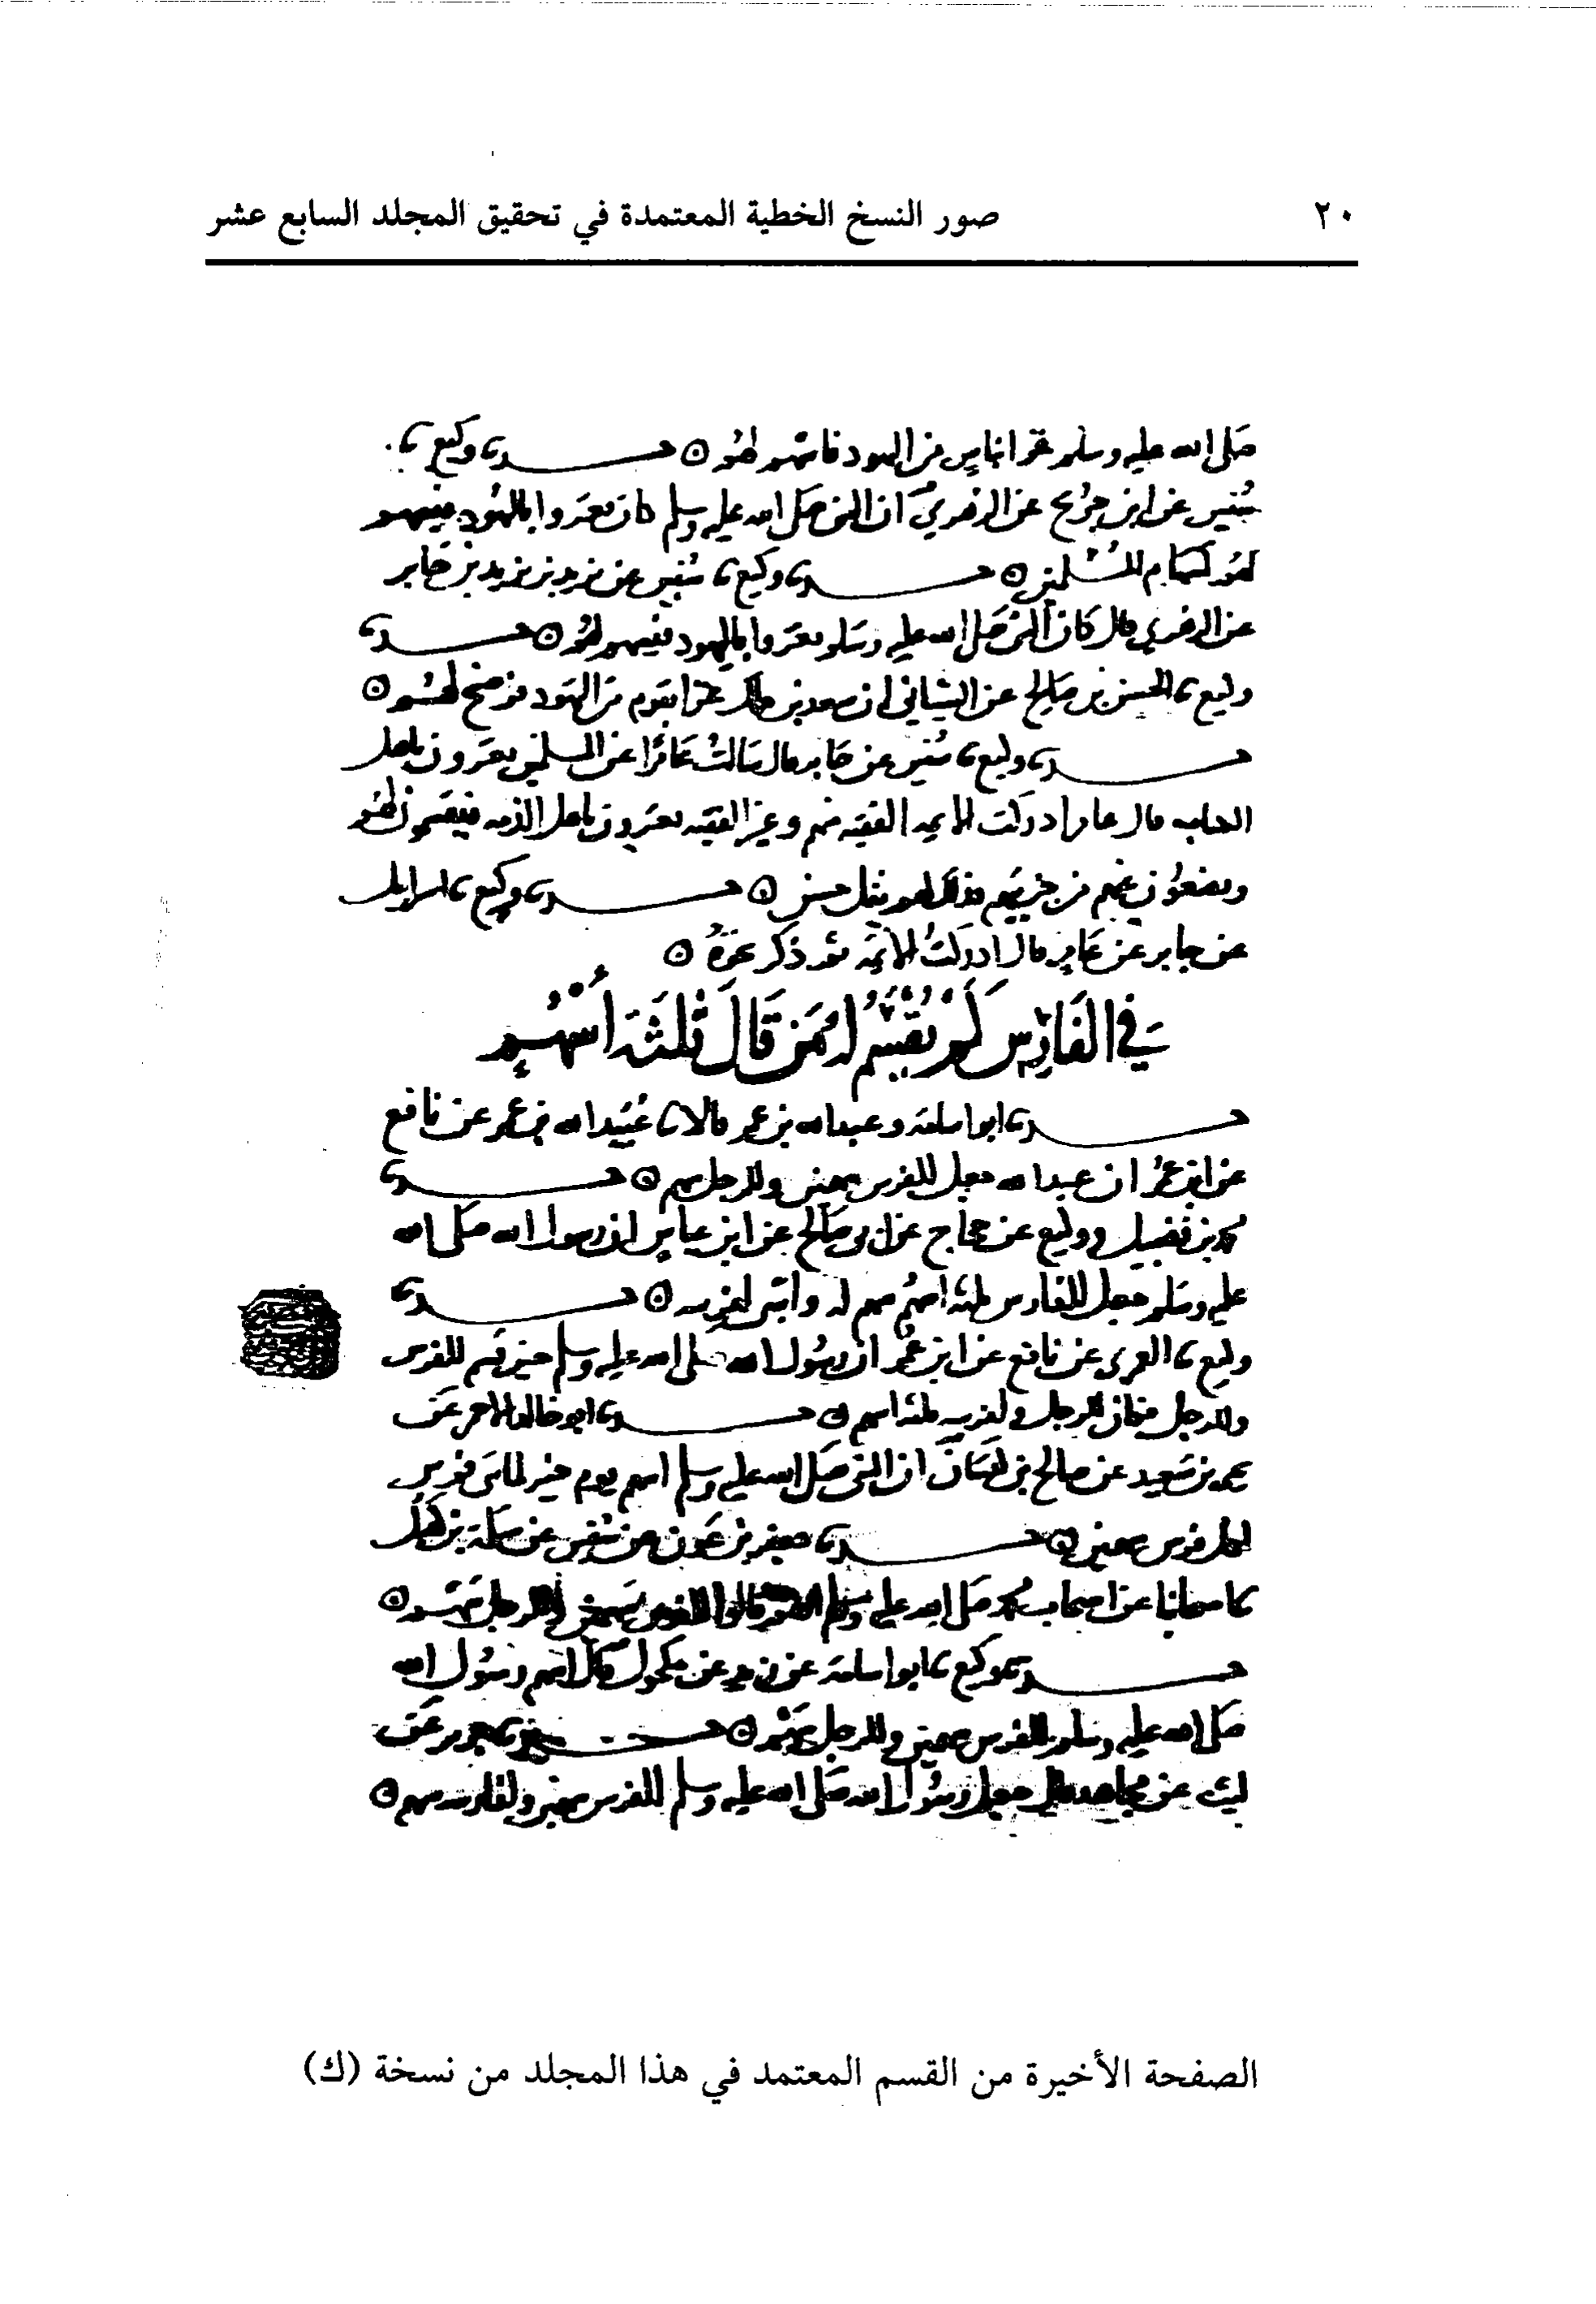 ٢٠ صور النسخ الخطية المعتمدة في تحقيق المجلد السابع عشر
صلى الله عليه وسلم غزا بناس من اليهود فاسهم لهم ۞ حدثنا وكيع نا
سفين عن ابن جريج عن الزهري ان النبي صلى الله عليه وسلم كان يغزوا باليهود فيسهم
لهم كسهام المسلمين ۞ حدثنا وكيع نا سفين عن يزيد بن يزيد بن جابر
عن الزهري قال كان النبي صلى الله عليه وسلم يغزوا باليهود فيسهم لهم ۞ حدثنا
وكيع نا الحسن بن صالح عن الشيباني ان سعد بن ملك غزا بقوم من اليهود فرضخ لهم ۞
حدثنا وكيع نا سفين عن جابر قال سالت عامرا عن المسلمين يغزون باهل
الكتاب قال عامر ادركت الائمة الفقيه منهم وغير الفقيه يغزون باهل الذمه فيقسمون لهم
ويضعون عنهم من جزيتهم فذلك لهم نفل حسن ۞ حدثنا وكيع نا اسرايل
عن جابر عن عامر قال ادركت الائمة ثم ذكر نحوه ۞
في الفارس كم يقسم له من قال ثلثة أسهم
حدثنا ابو اسامة وعبد الله بن نمير قالا نا عبيد الله بن عمر عن نافع
عن ابن عمر ان عبد الله جعل للفرس سهمين وللرجل سهم ۞ حدثنا
محمد بن فضيل ووكيع عن حجاج عن ابي صالح عن ابن عباس ان رسول الله صلى الله
عليه وسلم جعل للفارس ثلثه اسهم سهم له واثنين لفرسه ۞ حدثنا
وكيع نا العمري عن نافع عن ابن عمر ان رسول الله صلى الله عليه وسلم حين قسم للفرس
وللرجل فكان للرجل ولفرسه ثلثه اسهم ۞ حدثنا ابو خالد الاحمر عن
يحيى بن سعيد عن صالح بن كيسان ان النبي صلى الله عليه وسلم اسهم يوم خيبر لمائتي فرس
لكل فرس سهمين ۞ حدثنا جعفر بن عون عن سفين عن سلمة بن كهيل
نا اصحابنا عن اصحاب محمد صلى الله عليه وسلم قالوا للفرس سهمين وللرجل سهم ۞
حدثنا وكيع نا ابو اسامة عن عن مكحول قال اسهم رسول الله
صلى الله عليه وسلم للفرس سهمين وللرجل سهم ۞ حدثنا جرير عن
ليث عن مجاهد قال جعل رسول الله صلى الله عليه وسلم للفرس سهمين ولفارسه سهم ۞
الصفحة الأخيرة من القسم المعتمد في هذا المجلد من نسخة (ك)